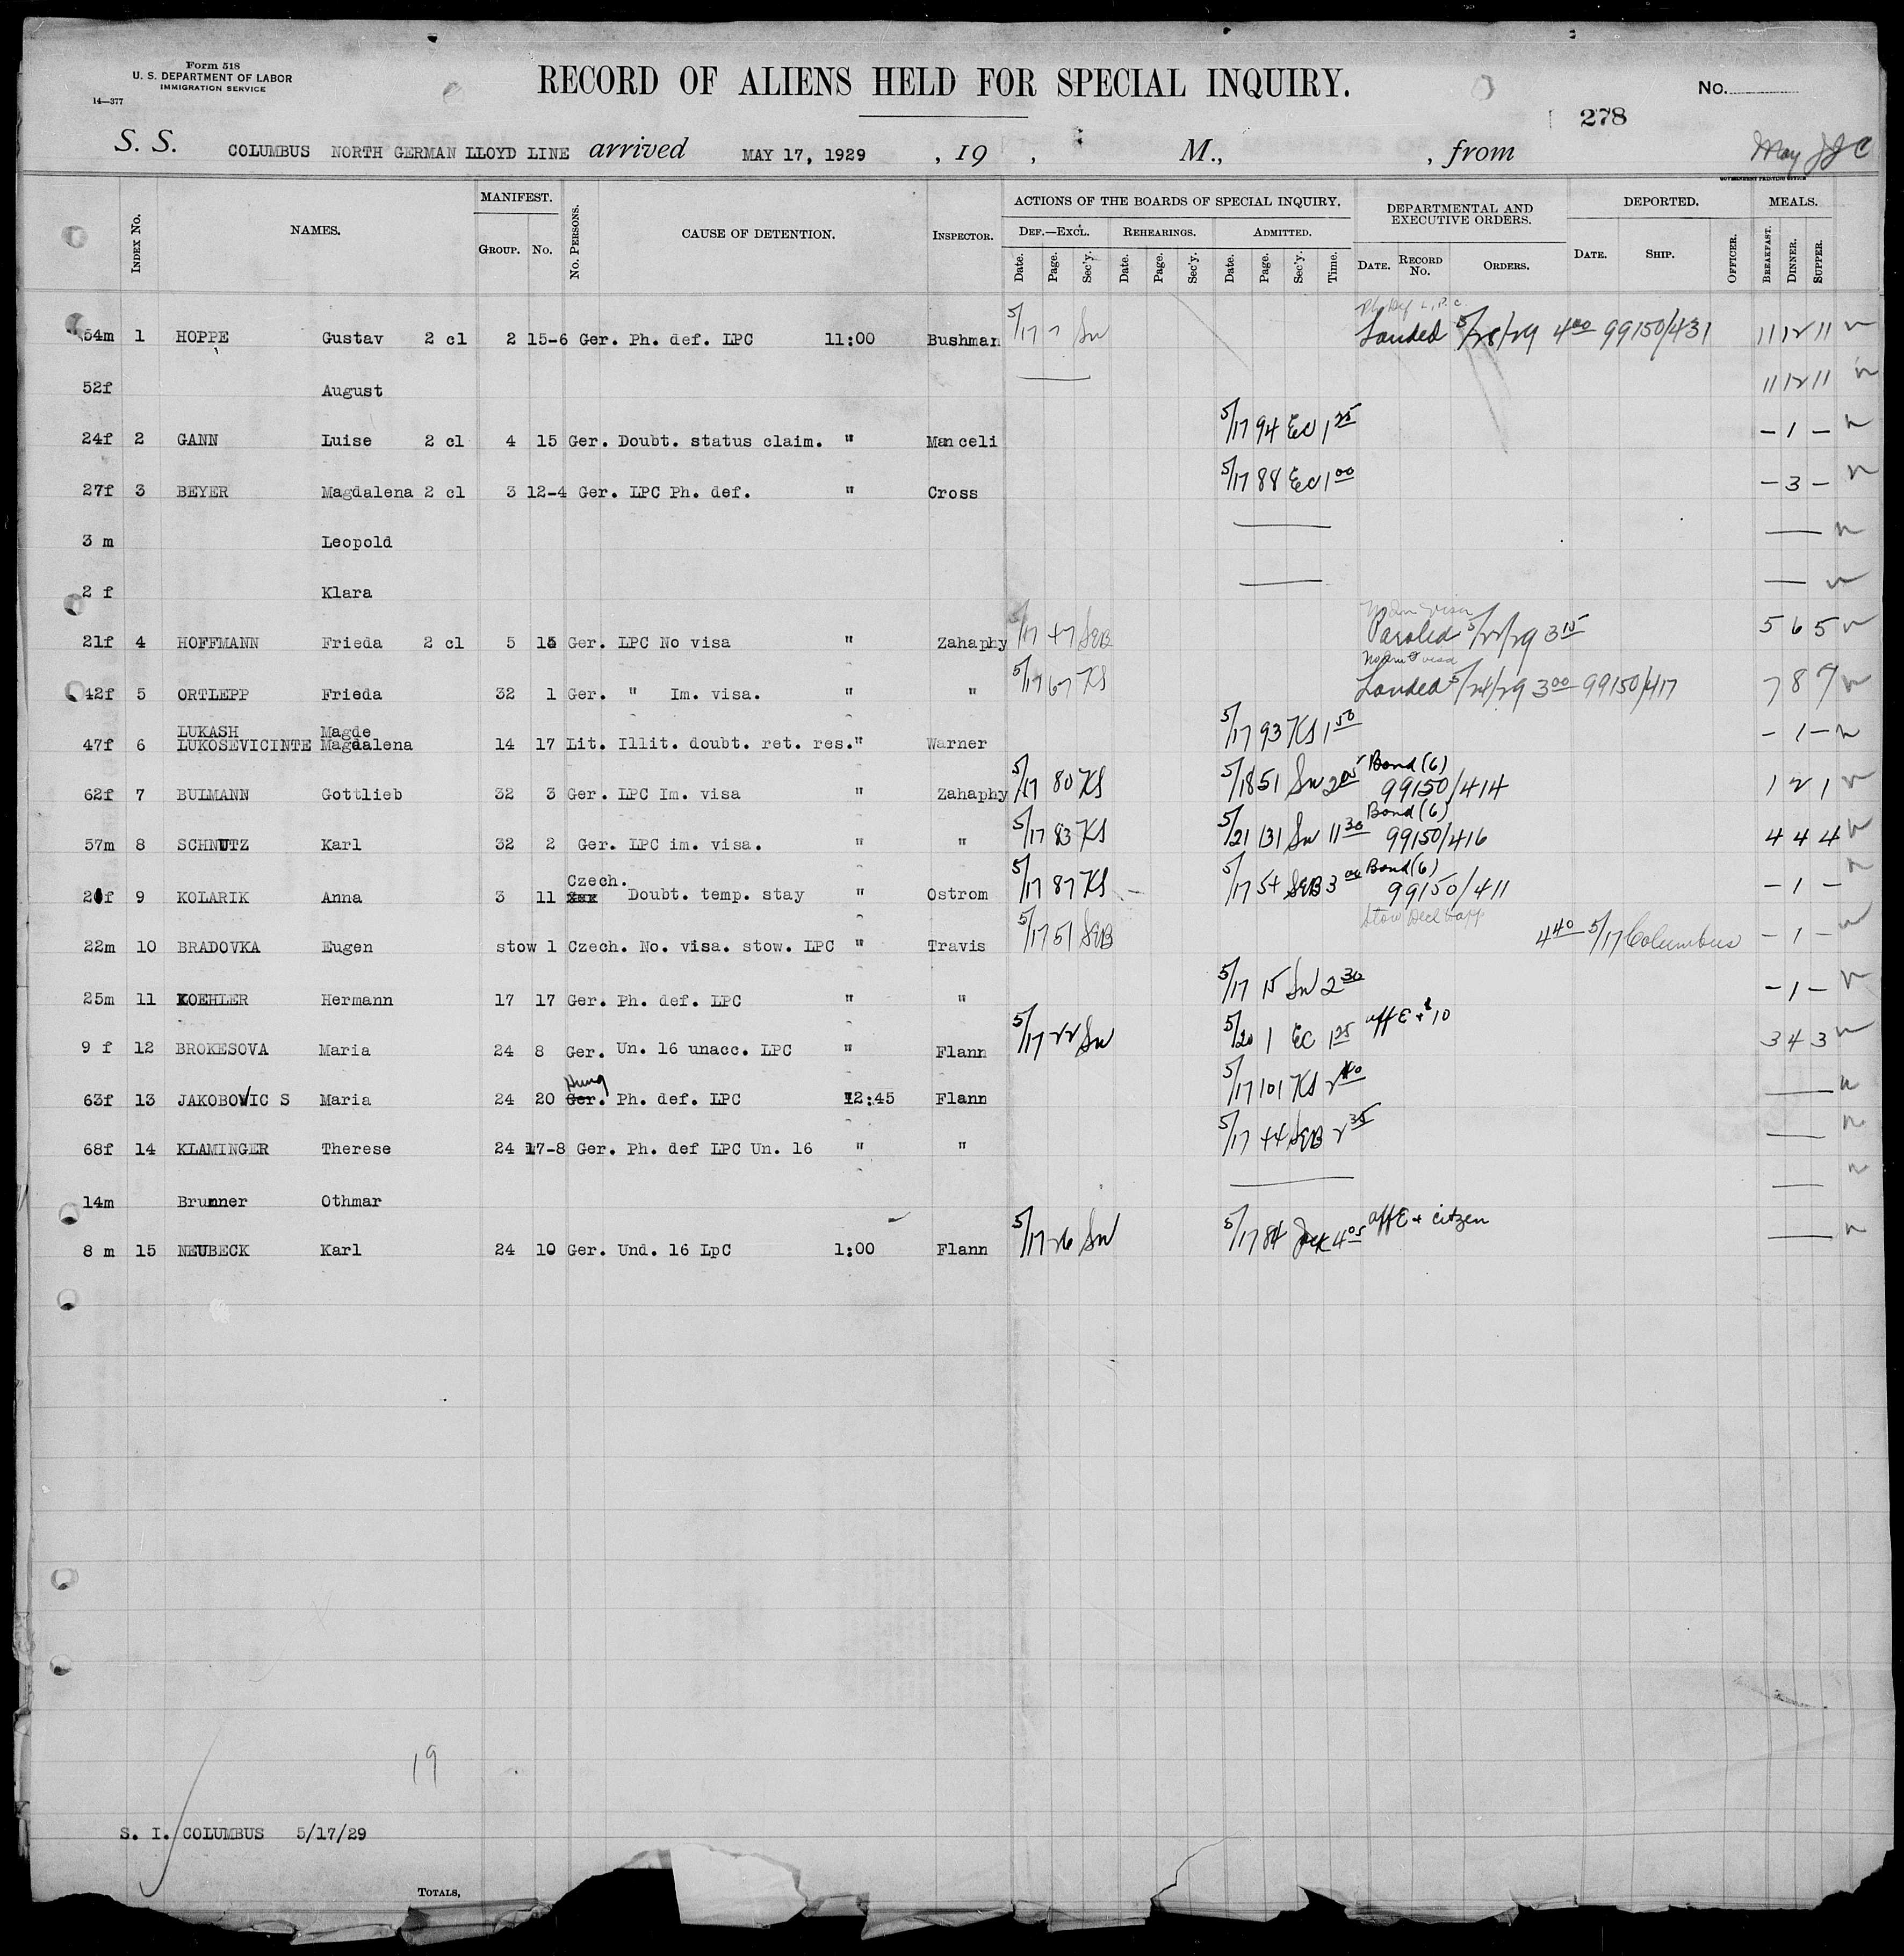 Form 518
U. S. DEPARTMENT OF LABOR
IMMIGRATION SERVICE
14—377
RECORD OF ALIENS HELD FOR SPECIAL INQUIRY.
No.
278
S. S. COLUMBUS NORTH GERMAN LLOYD LINE arrived MAY 17, 1929 , 19 , M., , from May
GOVERNMENT PRINTING OFFICE
INDEX No. NAMES. MANIFEST. GROUP. No. No. PERSONS. CAUSE OF DETENTION. INSPECTOR. ACTIONS OF THE BOARDS OF SPECIAL INQUIRY. DEPARTMENTAL AND EXECUTIVE ORDERS. DEPORTED. MEALS.
DEF.—EXCL. REHEARINGS. ADMITTED.
Date. Page. Sec'y. Date. Page. Sec'y. Date. Page. Sec'y. Time. DATE. RECORD No. ORDERS. DATE. SHIP. OFFICER. BREAKFAST. DINNER. SUPPER.
Ph Def L.P.C.
54m 1 HOPPE Gustav 2 cl 2 15-6 Ger. Ph. def. LPC 11:00 Bushman 5/17 7 SW Landed 5/28/29 4 00 99150/431 11 12 11
52f August 11 12 11
24f 2 GANN Luise 2 cl 4 15 Ger. Doubt. status claim. " Manceli 5/17 94 EC 1 25 - 1 -
27f 3 BEYER Magdalena 2 cl 3 12-4 Ger. LPC Ph. def. " Cross 5/17 88 EC 1 00 - 3 -
3 m Leopold
2 f Klara
No Im visa
21f 4 HOFFMANN Frieda 2 cl 5 15 Ger. LPC No visa " Zahaphy 5/17 47 SEB Paroled 5/22/29 3 15 5 6 5
No Im visa
42f 5 ORTLEPP Frieda 32 1 Ger. " Im. visa. " " 5/17 67 KS Landed 5/24/29 3 00 99150/417 7 8 7
LUKASH Magde
47f 6 LUKOSEVICINTE Magdalena 14 17 Lit. Illit. doubt. ret. res." Warner 5/17 93 KS 1 50 - 1 -
Bond (6)
62f 7 BULMANN Gottlieb 32 3 Ger. LPC Im. visa " Zahaphy 5/17 80 KS 5/18 51 SW 2 05 99150/414 1 2 1
Bond (6)
57m 8 SCHNUTZ Karl 32 2 Ger. LPC im. visa. " " 5/17 83 KS 5/21 131 SW 11 30 99150/416 4 4 4
Czech. Bond (6)
2 f 9 KOLARIK Anna 3 11 xxx Doubt. temp. stay " Ostrom 5/17 87 KS - 5/17 54 SEB 3 00 99150/411 - 1 -
Stow
22m 10 BRADOVKA Eugen stow 1 Czech. No. visa. stow. LPC " Travis 5/17 51 SEB 4 40 5/17 Columbus - 1 -
25m 11 KOEHLER Hermann 17 17 Ger. Ph. def. LPC " " 5/17 15 SW 2 30 - 1 -
9 f 12 BROKESOVA Maria 24 8 Ger. Un. 16 unacc. LPC " Flann 5/17 22 SW 5/20 1 EC 1 25 aff E + $10 3 4 3
Hung
63f 13 JAKOBOVIC S Maria 24 20 Ger. Ph. def. LPC 12:45 Flann 5/17 101 KS 2 40
68f 14 KLAMINGER Therese 24 17-8 Ger. Ph. def LPC Un. 16 " " 5/17 44 SEB 2 35
14m Brunner Othmar
8 m 15 NEUBECK Karl 24 10 Ger. Und. 16 LpC 1:00 Flann 5/17 26 SW 5/17 84 4 05 aff E + citzen
19
S. I. COLUMBUS 5/17/29
TOTALS,